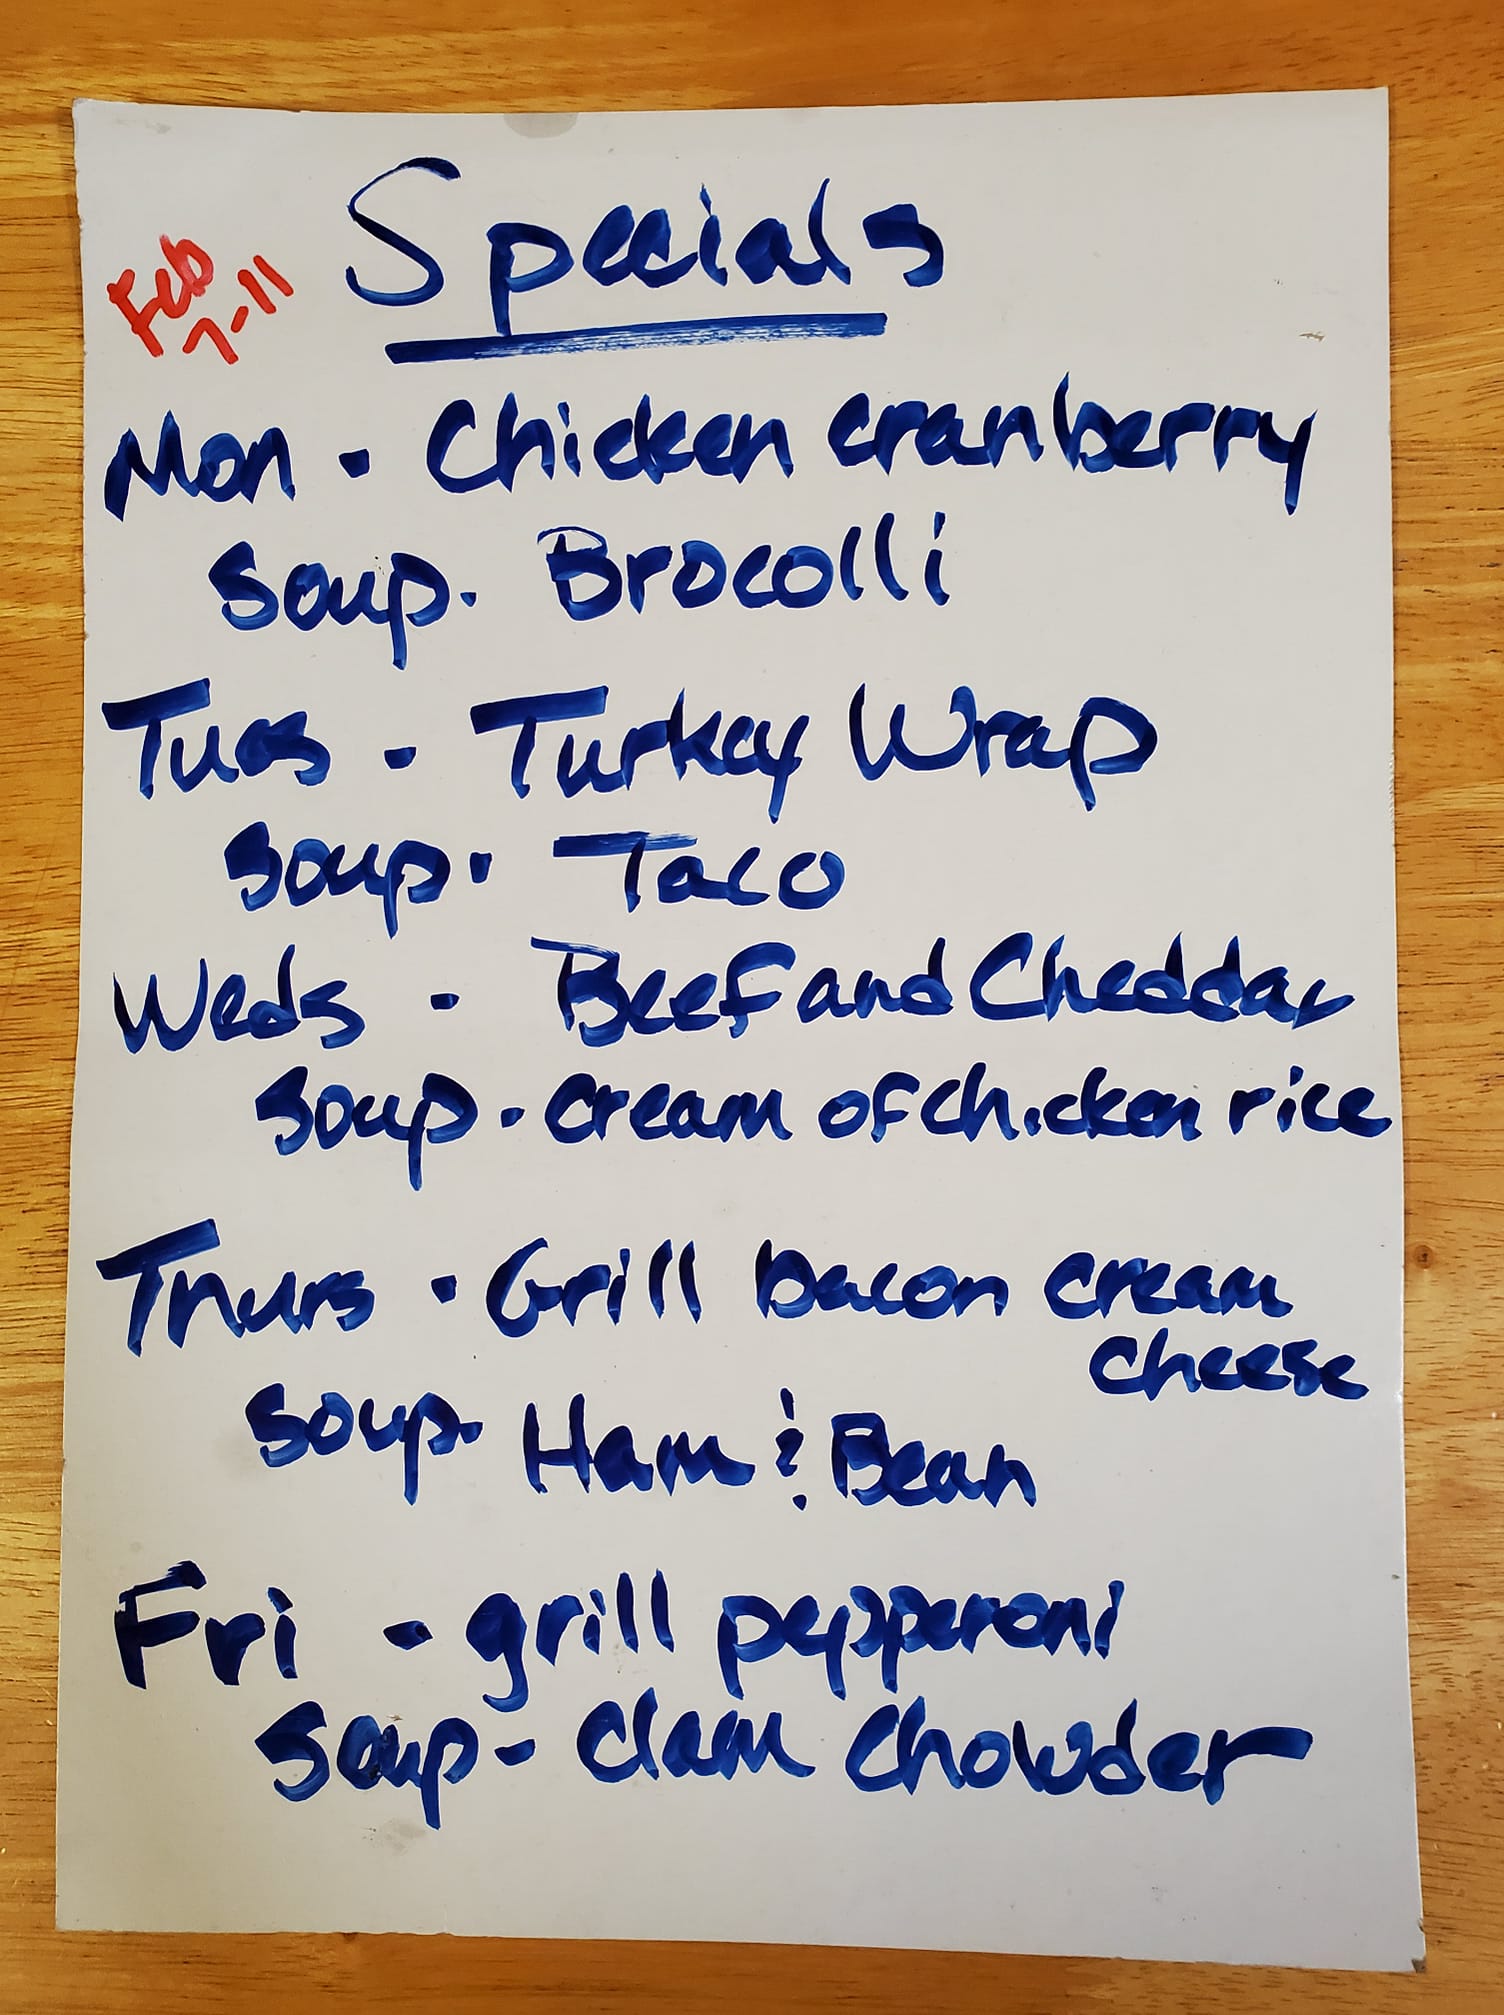 Specials
Feb
7-11
Mon - Chicken cranberry
Soup - Brocolli
Tues - Turkey Wrap
Soup - Taco
Weds - Beef and Cheddar
Soup - Cream of chicken rice
Thurs - Grill bacon cream
cheese
Soup - Ham & Bean
Fri - grill pepperoni
Soup - Clam Chowder